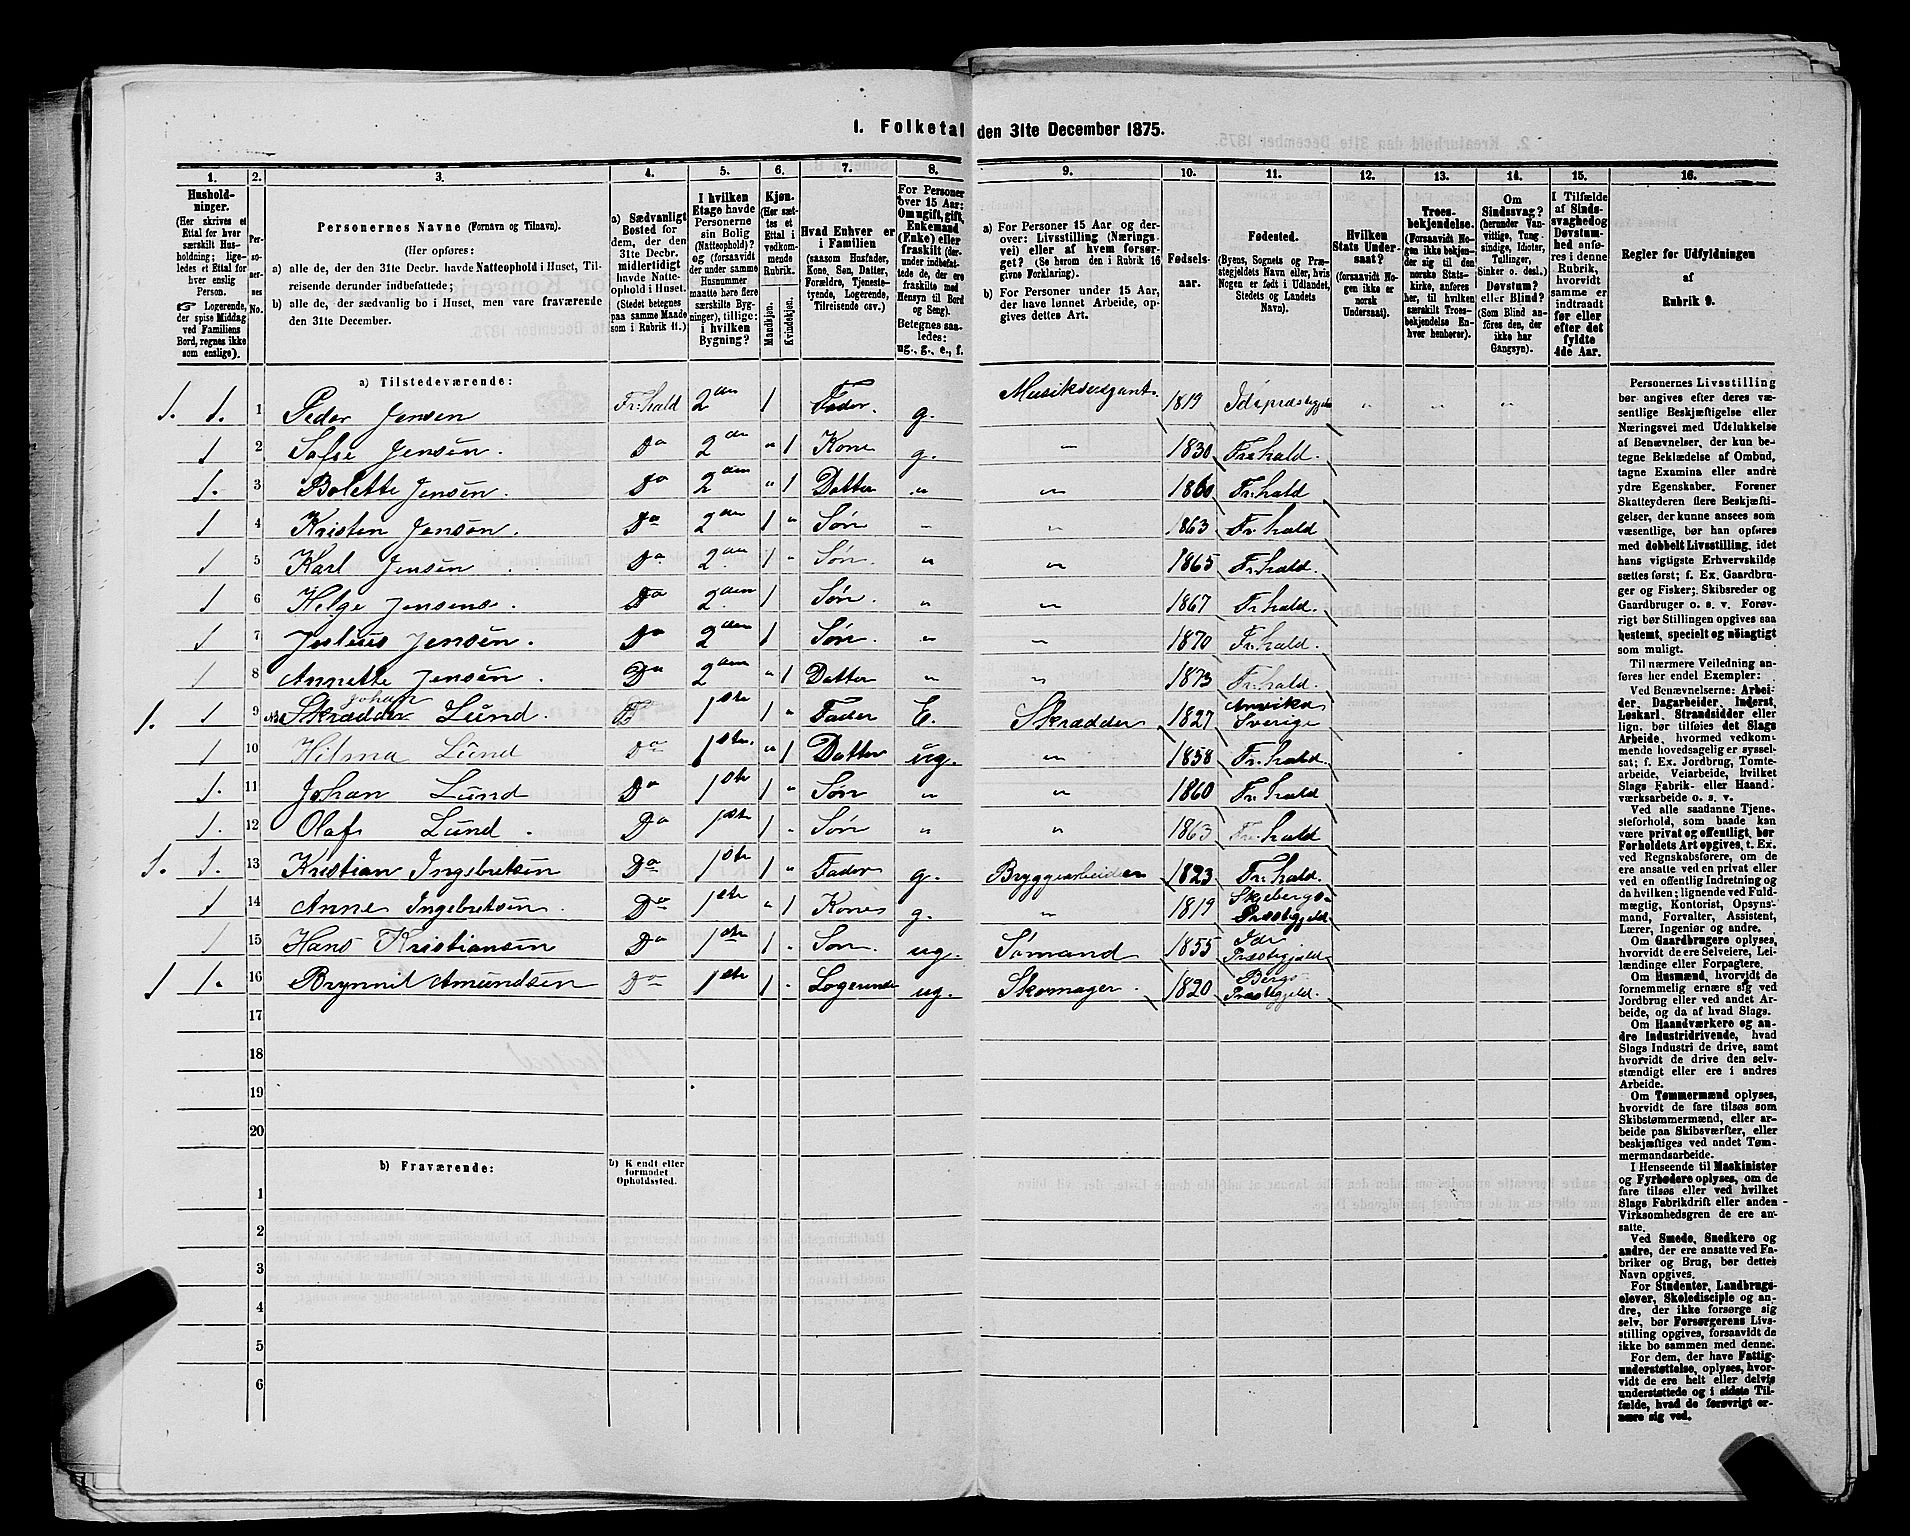 1. Folketal den 31te December 1875.
1. 2. 3. 4. 5. 6. 7. 8. 9. 10. 11. 12. 13. 14. 15. 16.
Hushold-
ninger.
(Her skrives et
Ettal for hver
særskilt Hus-
holdning; lige-
ledes et Ettal for
hver enslig
Person.
☞ Logerende,
der spise Middag
ved Familiens
Bord, regnes ikke
som enslige).
Per-
so-
ner-
nes
No.
Personernes Navne (Fornavn og Tilnavn).
(Her opføres:
a) alle de, der den 31te Decbr. havde Natteophold i Huset, Til-
reisende derunder indbefattede;
b) alle de, der sædvanlig bo i Huset, men vare fraværende
den 31te December.
a) Sædvanligt
Bosted for
dem, der den
31te Decbr.
midlertidigt
havde Natte-
ophold i Huset.
(Stedet betegnes
paa samme Maade
som i Rubrik 11.)
I hvilken
Etage havde
Personerne
sin Bolig
(Natteophold)?
og (forsaavidt
der under samme
Husnummer
maatte høre flere
særskilte Byg-
ninger), tillige:
i hvilken
Bygning?
Kjøn.
(Her sæt-
tes et
Ettal i
vedkom-
mende
Rubrik.
Mandkjøn.
Kvindekjøn.
Hvad Enhver er
i Familien
(saasom Husfader,
Kone, Søn, Datter,
Forældre, Tjeneste-
tyende, Logerende,
Tilreisende osv.)
For Personer
over 15 Aar:
Om ugift, gift,
Enkemand
(Enke) eller
fraskilt (der-
under indbefat-
tede de, der ere
fraskilte med
Hensyn til Bord
og Seng).
Betegnes saa-
ledes:
ug., g., e., f.
a) For Personer 15 Aar og der-
over: Livsstilling (Nærings-
vei) eller af hvem forsør-
get? (Se herom den i Rubrik 16
givne Forklaring).
b) For Personer under 15 Aar,
der have lønnet Arbeide, op-
gives dettes Art.
Fødsels-
aar.
Fødested.
(Byens, Sognets og Præ-
stegjeldets Navn eller, hvis
Nogen er født i Udlandet,
Stedets og Landets
Navn).
Hvilken
Stats Under-
saat?
(forsaavidt No-
gen ikke er
norsk
Undersaat).
Troes-
bekjendelse.
(Forsaavidt No-
gen ikke bekjen-
der sig til den
norske Stats-
kirke, anføres
her, til hvilken
særskilt Troes-
bekjendelse En-
hver henhører).
Om
Sindssvag?
(herunder Van-
vittige, Tung-
sindige, Idioter,
Tullinger,
Sinker o. desl.)
Døvstum?
eller Blind?
(Som Blind an-
føres den, der
ikke har
Gangsyn).
I Tilfælde
af Sinds-
svaghed og
Døvstum-
hed anfø-
res i denne
Rubrik,
hvorvidt
samme er
indtraadt
før eller
efter det
fyldte
4de Aar.
Regler for Udfyldningen
af
Rubrik 9.
a) Tilstedeværende:
1. 1. 1 Peder Jensen Fr.hald 2den 1 Fader. g. 1819 Idepræstegjeld " " "
1 2 Sofie Jensen. Do 2den " 1 Kone g. " 1830 Fr.hald.
1. 3 Bolette Jensen. Do 2den " 1 Datter " " 1860 Fr.hald
1 4 Kristen Jensen. Do 2den 1 " Søn " " 1863 Fr.hald
1 5 Karl Jensen Do. 2den 1 " Søn. " " 1865 Fr.hald.
1 6 Helge Jensen. Do 2den 1 Søn. " " 1867 Fr.hald.
1 7 Justus Jensen. Do 2den 1 Søn. " " 1870 Fr.hald.
1 8 Annette Jensen. Do 2den " 1 Datter " " 1873 Fr.hald.
Johan
1. 1 9 Skrædder Lund. 1ste 1 " Fader E. Skrædder 1827 Arvika Sverige
1 10 Hilma Lund Do 1ste. " 1 Datter ug. " 1858 Fr.hald.
1. 11 Johan Lund Do 1ste 1 " Søn " " 1860 Fr.hald
1. 12 Olaf Lund. Do 1ste 1 . Søn " " 1863 Fr.hald
1. 1. 13 Kristian Ingebretsen Do 1ste 1 " Fader g. Bryggearbeider 1823 Fr.hald.
1 14 Anne Ingebretsen. Do 1ste " 1 Kone g. " 1819 Skjebergs Præstegjeld.
1 15 Hans Kristiansen Do 1ste 1 . Søn. ug. Sømand 1855 Ide Præstegjeld
1 1. 16 Amundsen Do 1ste 1 . Logerende ug. Skomager. 1820 Bergs Præstegjeld.
17
18
19
20
b) Fraværende:
b) Kendt eller
formodet
Opholdssted.
1
2
3
4
5
6
Personernes Livsstilling
bør angives efter deres væ-
sentlige Beskjæftigelse eller
Næringsvei med Udelukkelse
af Benævnelser, der kun be-
tegne Beklædelse af Ombud,
tagne Examina eller andre
ydre Egenskaber. Forener
Skatteyderen flere Beskjæfti-
gelser, der kunne ansees som
væsentlige, bør han opføres
med dobbelt Livsstilling, idet
hans vigtigste Erhvervskilde
sættes først; f. Ex. Gaardbru-
ger og Fisker; Skibsreder og
Gaardbruger o. s. v. Forøv-
rigt bør Stillingen opgives saa
bestemt, specielt og nöiagtigt
som muligt.
Til nærmere Veiledning an-
føres her endel Exempler:
Ved Benævnelserne: Arbei-
der, Dagarbeider, Inderst,
Løskarl, Strandsidder eller
lign. bør tilføies det Slags
Arbeide, hvormed vedkom-
mende hovedsagelig er syssel-
sat; f. Ex. Jordbrug, Tomte-
arbeide, Veiarbeide, hvilket
Slags Fabrik- eller Haand-
værksarbeide o. s. v.
Ved alle saadanne Tjene-
steforhold, som baade kan
være privat og offentligt, bør
Forholdets Art opgives, t. Ex.
ved Regnskabsførere, om de
ere ansatte ved en privat eller
ved en offentlig Indretning og
da hvilken; lignende ved Fuld-
mægtig, Kontorist, Opsyns-
mand, Forvalter, Assistent,
Lærer, Ingeniør og andre.
Om Gaardbrugere oplyses,
hvorvidt de ere Selveiere, Lei-
lændinge eller Forpagtere.
Om Husmænd, hvorvidt de
fornemmelig ernære sig ved
Jordbrug eller ved andet Ar-
beide, og da af hvad Slags.
Om Haandværkere og an-
dre Industridrivende, hvad
Slags Industri de drive, samt
hvorvidt de drive den selv-
stændigt eller ere i andres
Arbeide.
Om Tømmermænd oplyses,
hvorvidt de fare tilsøs som
Skibstømmermænd, eller ar-
beide paa Skibsværfter, eller
beskjæftiges ved andet Tøm-
mermandsarbeide.
I Henseende til Maskinister
og Fyrbødere oplyses, om de
fare tilsøs eller ved hvilket
Slags Fabrikdrift eller anden
Virksomhedsgren de ere an-
satte.
Ved Smede, Snedkere og
andre, der ere ansatte ved Fa-
briker og Brug, bør dettes
Navn opgives.
For Studenter, Landbrugs-
elever, Skoledisciple og an-
dre, der ikke forsørge sig
selv, bør Forsørgerens Livs-
stilling opgives, forsaavidt de
ikke bo sammen med denne.
For dem, der have Fattig-
understøttelse, oplyses, hvor-
vidt de ere helt eller delvis
understøttede og i sidste Til-
fælde, hvad de forøvrigt er-
nære sig ved.